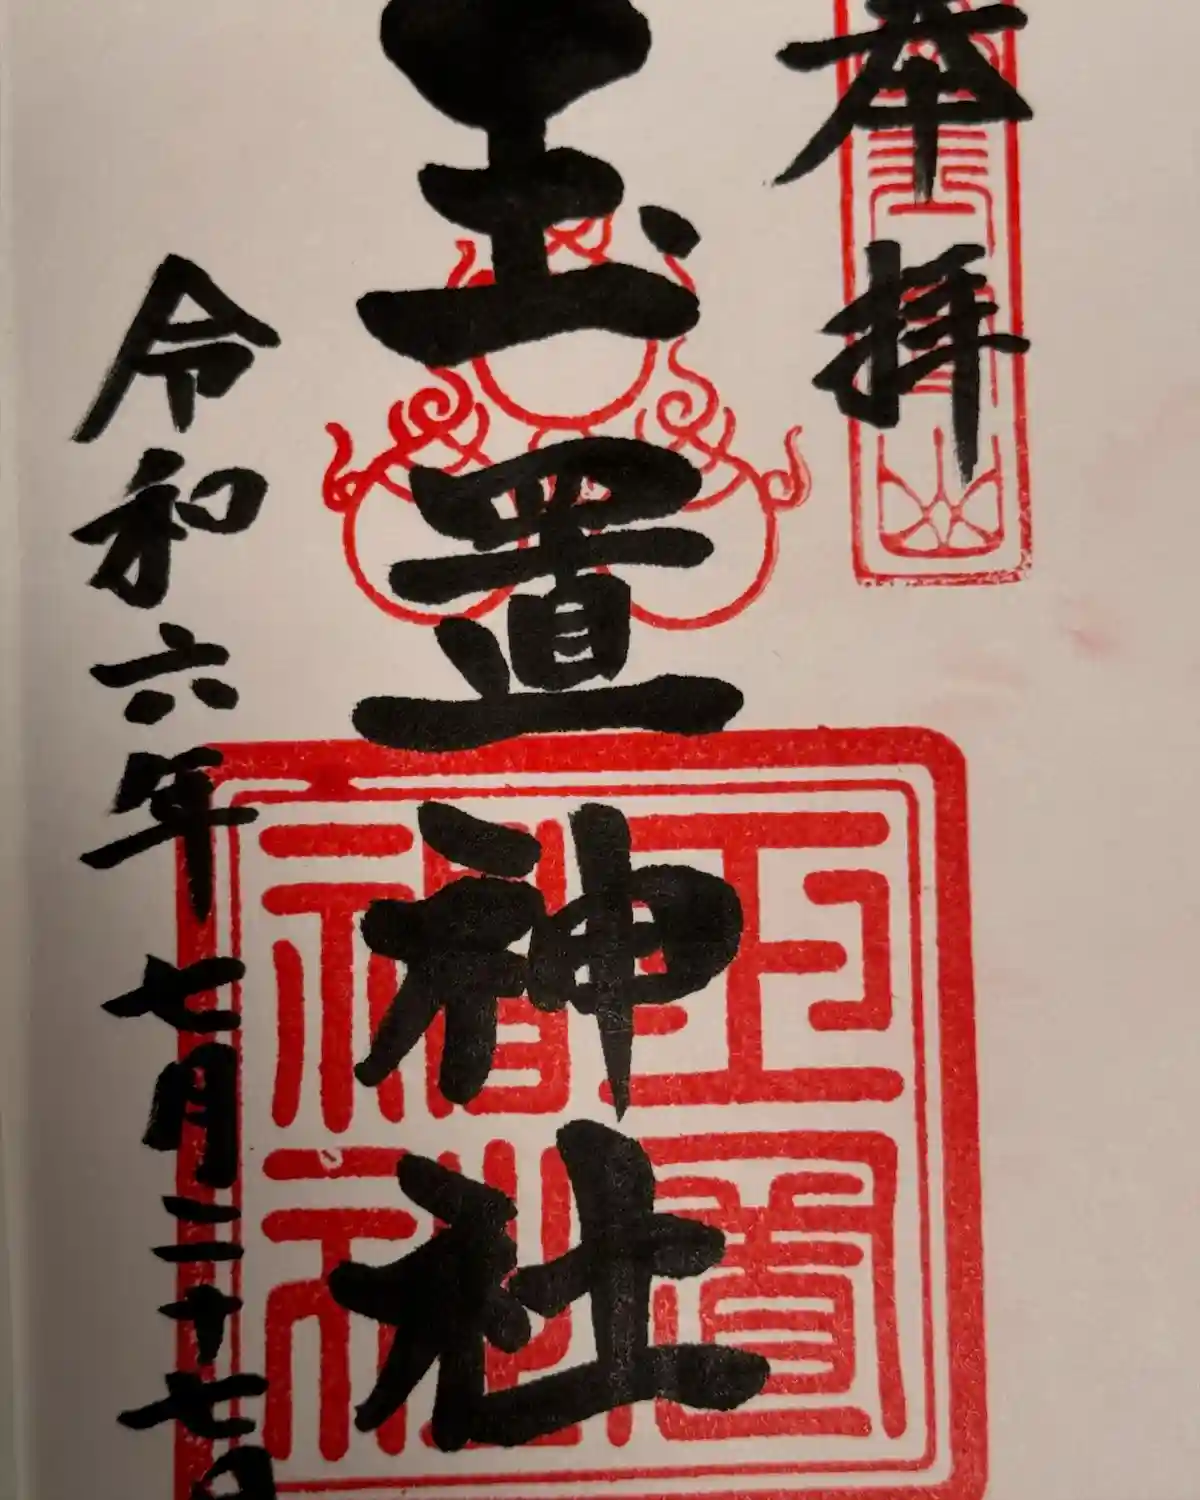 奉拝
玉置神社
令和六年七月二十七日
玉置神社